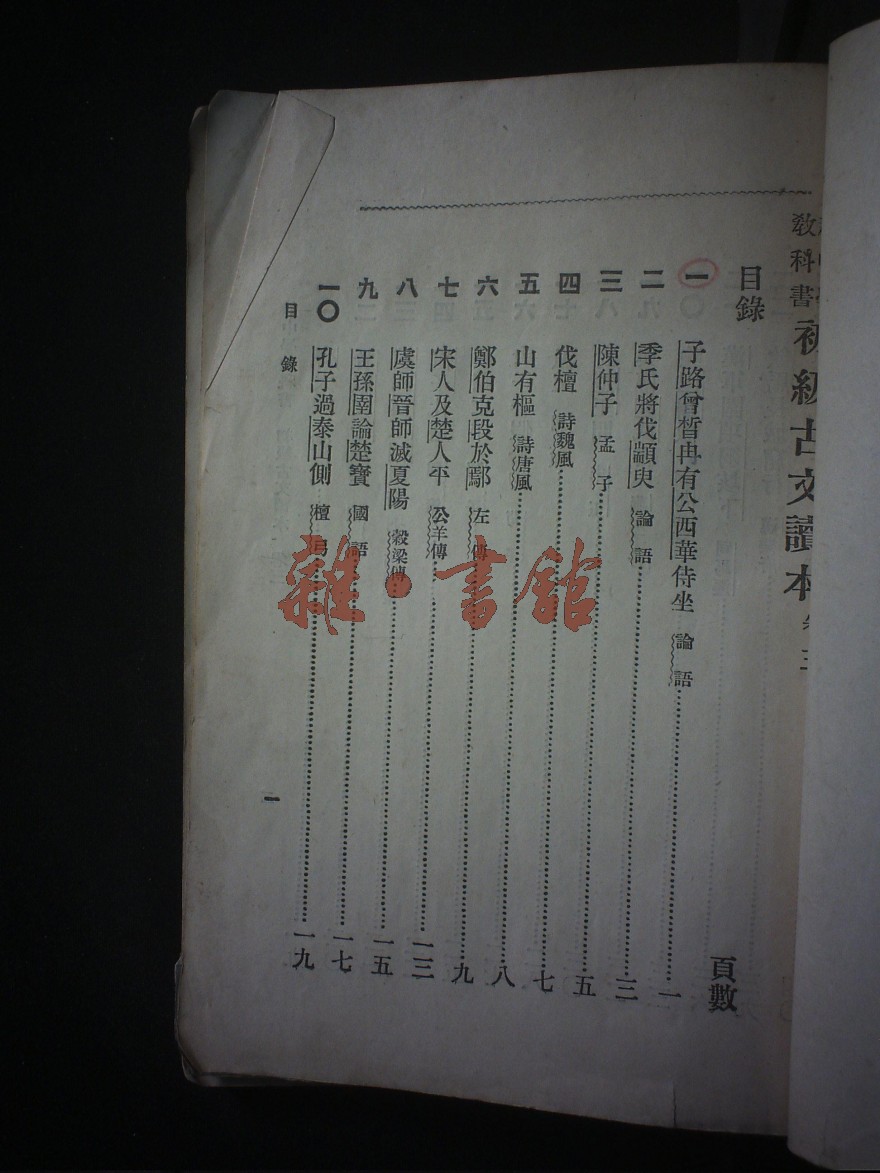 教科書 初級古文讀本
目錄
頁數
一 子路曾皙冉有公西華侍坐 論語 一
二 季氏將伐顓臾 論語 三
三 陳仲子 孟子 五
四 伐檀 詩魏風 七
五 山有樞 詩唐風 八
六 鄭伯克段於鄢 左傳 九
七 宋人及楚人平 公羊傳 一三
八 虞師晉師滅夏陽 穀梁傳 一五
九 王孫圉論楚寶 國語 一七
一〇 孔子過泰山側 檀弓 一九
目錄
一
雜·書館